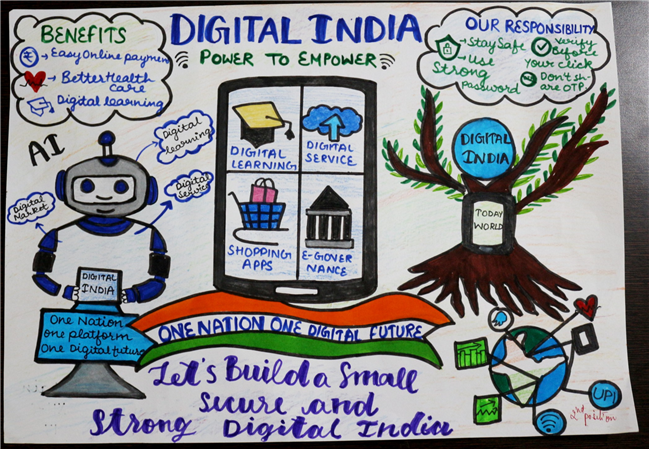 DIGITAL INDIA
POWER TO EMPOWER
BENEFITS
→ Easy Online payment
→ Better Health
care
→ Digital learning
OUR RESPONSIBILITY
→ Stay Safe
→ Use
Strong
Password
Verify
Before
your click
Don't sh-
are OTP.
AI
Digital
learning
Digital
Service
Digital
Market
DIGITAL
INDIA
One Nation
one platform
One Digital future
DIGITAL
LEARNING
DIGITAL
SERVICE
SHOPPING
APPS
E-GOVER
NANCE
DIGITAL
INDIA
TODAY
WORLD
ONE NATION ONE DIGITAL FUTURE
Let's Build a Small
Secure and
Strong Digital India
UPI
2nd position